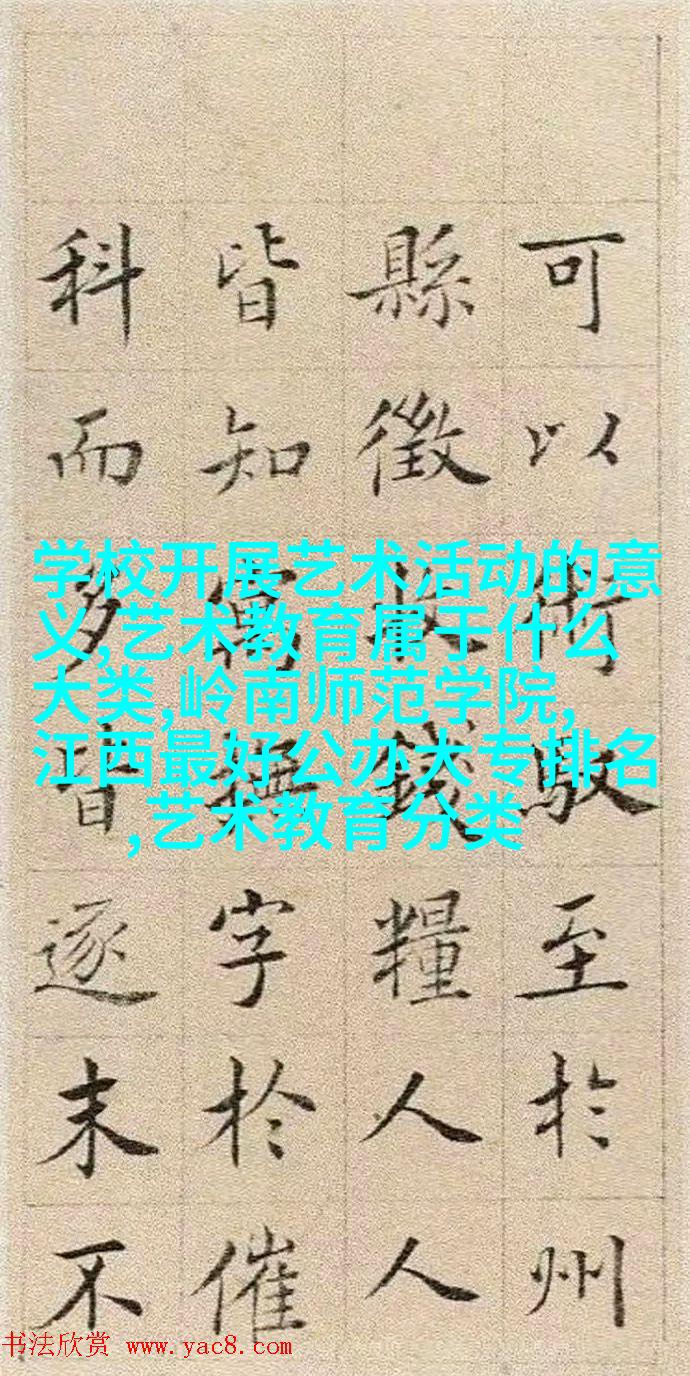 可以術馭至於州
縣徵收錢糧人人
皆知寓撫字於催
科而多皆逐末不
学校开展艺术活动的意
义,艺术教育属于什么
大类,岭南师范学院,
江西最好公办大专排名
,艺术教育分类
书法欣赏 www.yac8.com